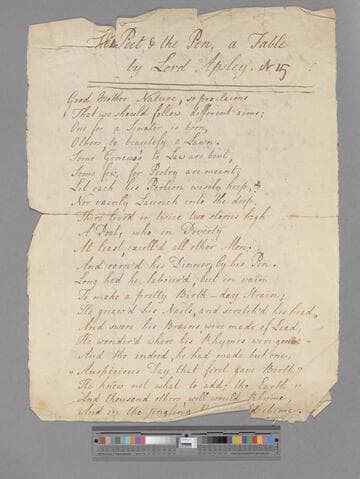 The Poet & the Pen, a Fable
by Lord Apsley. N 15
Good Mother Nature, so proclaims
That we should follow different aims;
One for a Senator is born,
Others, to beautify a Lawn.
Some Genius's to Law are bent,
Some few, for Poetry are meant;
Let each his Portion wisely keep,
Nor vainly Launch into the deep.
There liv'd in twice two stories high
A Poet, who in Poverty
At least, excell'd all other Men;
And earn'd his Dinner, by his Pen.
Long had he labour'd, but in vain
To make a pretty Birth-day Strain;
He gnaw'd his Nails, and scratch'd his head,
And swore his Brains were made of Lead,
He wonder'd where his Rhymes were gone
And tho indeed, he had made but one,
"Auspicious Day that first gave Birth"
He knew not what to add, the Earth"
And thousand others, will would Rhyme
And in the jingling